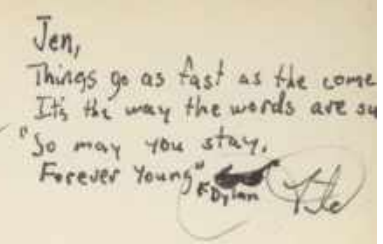 Jen,
Things go as fast as the come
It's the way the words are su
"So may you stay,
Forever Young"
F Dylan